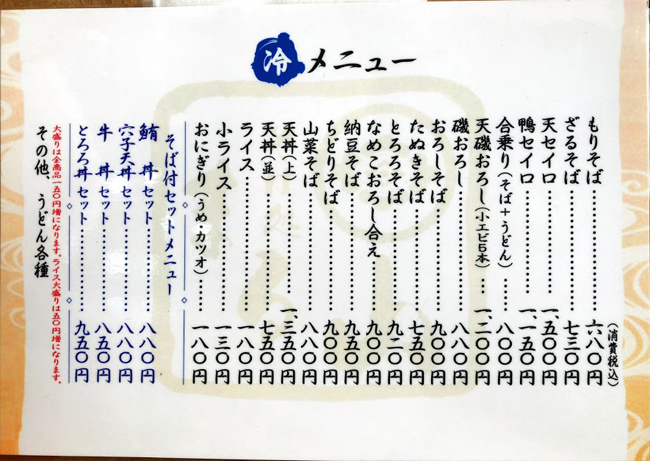 冷メニュー
(消費税込)
もりそば……六八〇円
ざるそば……七三〇円
天セイロ……一、五〇〇円
鴨セイロ……一、一五〇円
合乗り(そば+うどん)……八〇〇円
天磯おろし(小エビ5本)…一、二〇〇円
磯おろし……八八〇円
おろしそば……九〇〇円
たぬきそば……七五〇円
とろろそば……九二〇円
なめこおろし合え……九〇〇円
納豆そば……九五〇円
ちどりそば……九〇〇円
山菜そば……八八〇円
天丼(上)……一、三五〇円
天丼(並)……七五〇円
ライス……一八〇円
小ライス……一三〇円
おにぎり(うめ・カツオ)……一八〇円
そば付セットメニュー
鮪丼セット……八八〇円
穴子天丼セット……八八〇円
牛丼セット……八五〇円
とろろ丼セット……九五〇円
大盛りは全商品一五〇円増になります。ライス大盛りは五〇円増になります。
その他、うどん各種